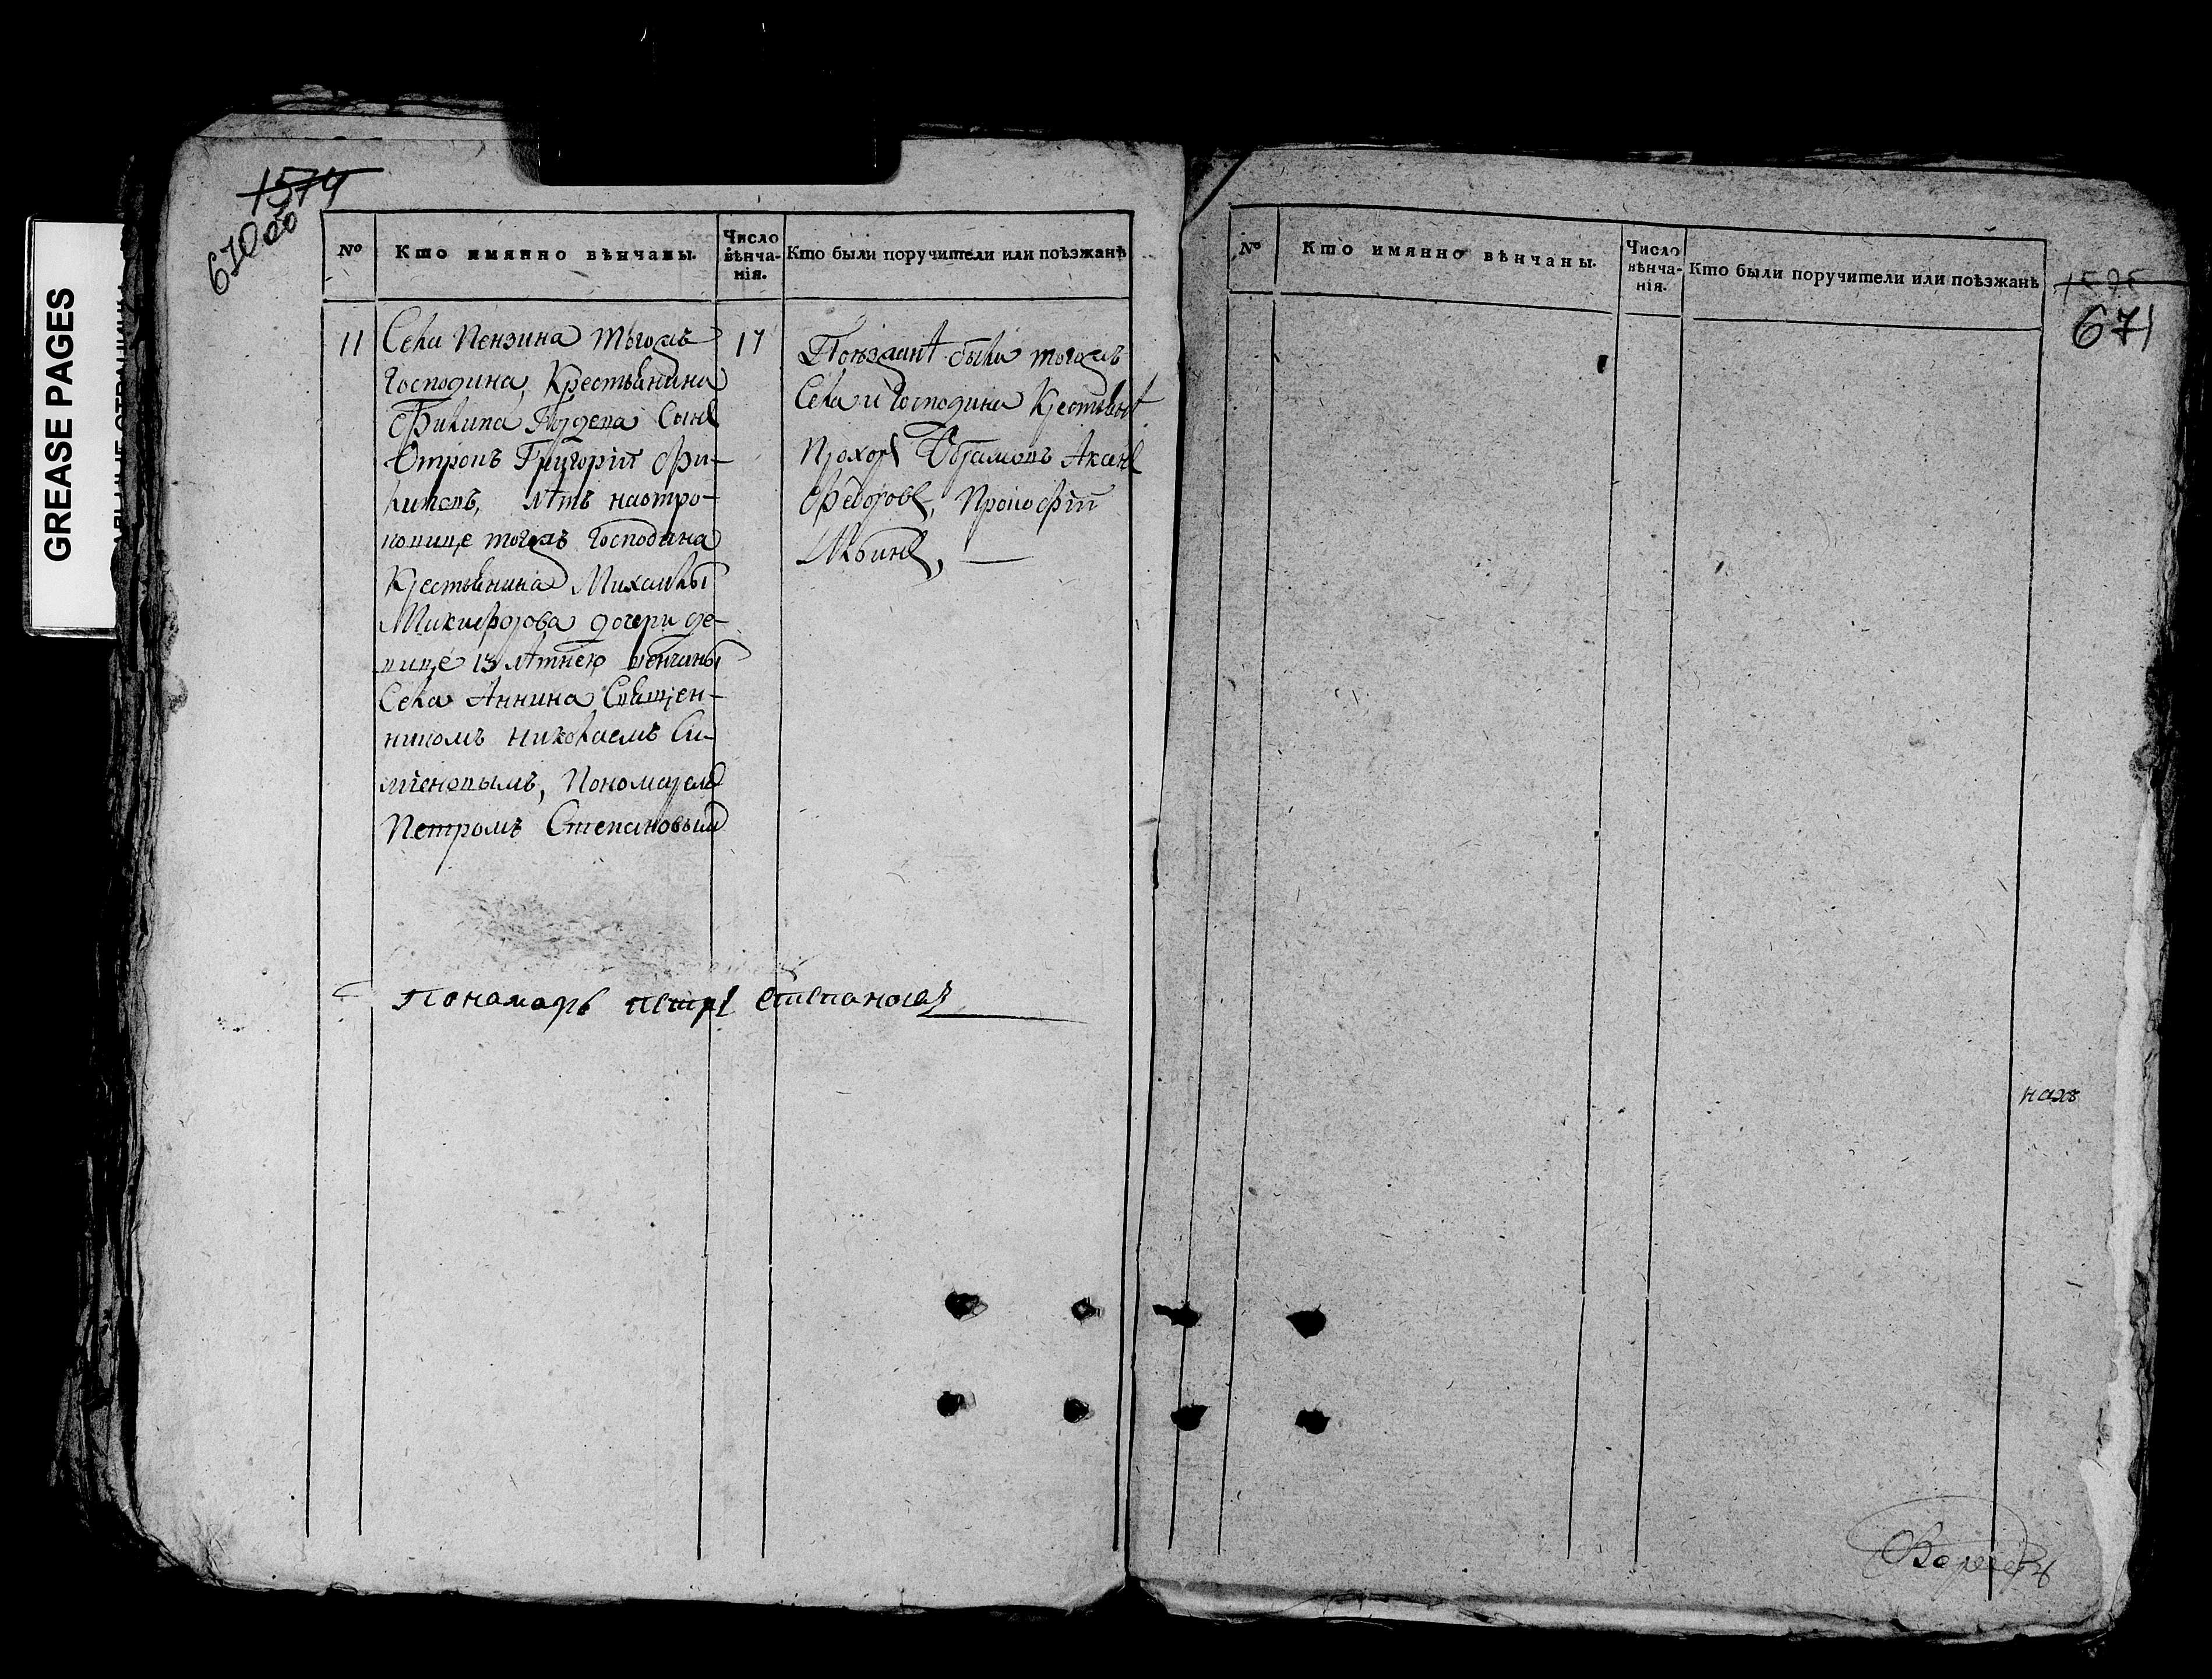 GREASE PAGES
1574
670об
№ Кто имянно вѣнчаны. Число вѣнча-нія. Кто были поручители или поѣзжанѣ
11
Села Пензина тогожъ
Господина, Крестьянина
Филипа Сынъ
Отрокъ Григорій Фи-
липовъ, лѣтъ наотро-
ковице тогожъ Господина
Крестьянина Михаилы
Микифорова дочери де-
вице 13 лѣтнею венчаны
Села Аннина Священ-
никомъ Николаемъ Си-
меновымъ, Пономаремъ
Петромъ Степановымъ
17
Поезжанѣ были тогожъ
Села и Господина Крестьянѣ
Прохоръ Абрамовъ
Федоровъ, Прокофій
Пономарь петръ степановъ
№ Кто имянно вѣнчаны. Число вѣнча-нія. Кто были поручители или поѣзжанѣ
671